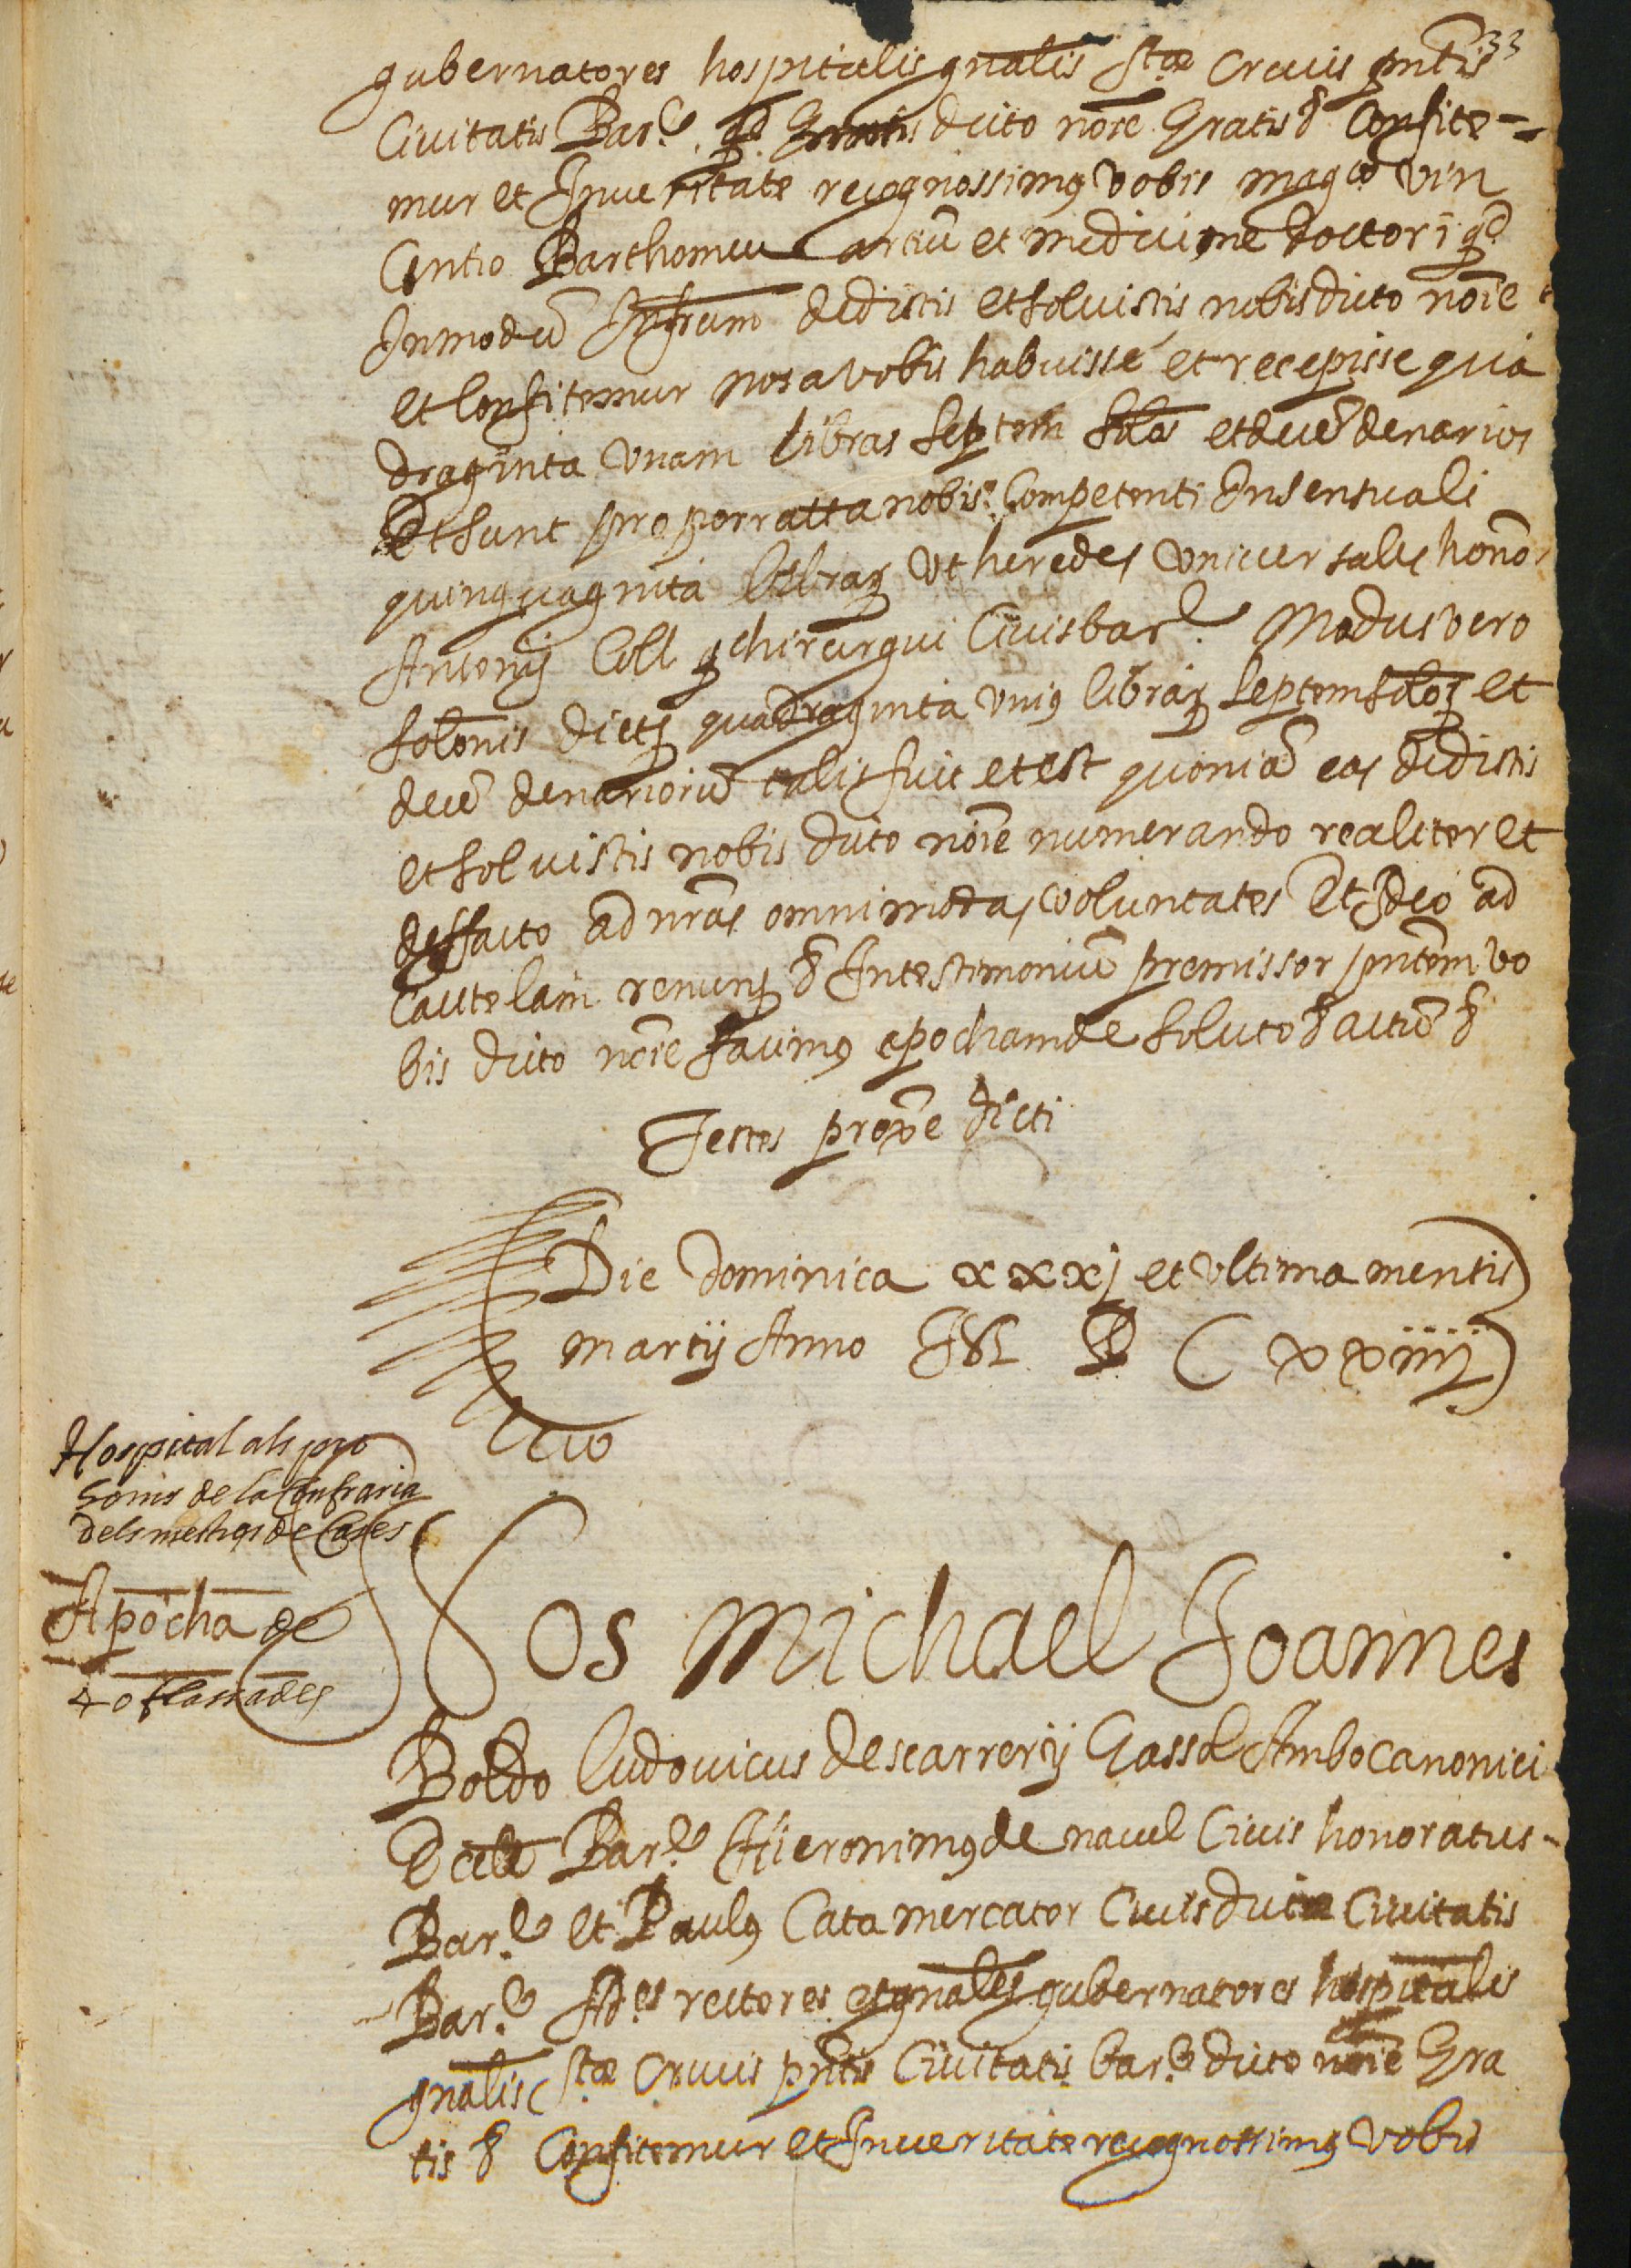 33
gubernatores hospitalis gnalis Stæ Crucis pntis
Ciuitatis Bar.e dicto noie Gratis & Confite-
mur et Inueritate recognossimus vobis magco vin
Centio Barthomeu artiū et medicine doctori qd
Inmodū Infrum dedistis etsoluistis nobis dicto noie
et Confitemur nos a vobis habuisse et recepisse qua
draginta vnam libras septem solos et decē denarios
Et sunt pro porratta nobis Competenti Insensuali
quinquaginta librarz vt heredes vniuersales hono
Antonij Coll q chirurgui Ciuis bar.e Modus vero
solonis dictz quadraginta vnius librarz septem solorz et
decē denariorū talis fuit et est quoniā eas dedistis
et soluistis nobis dicto noie numerando realiter et
deffacto ad nras omnimodas voluntates Et Ideo ad
Cautelam renung & Intestimoniū premissor pntem vo
bis dicto noie facimus apocham de soluto & actiō &
Testes proxe dicti
Die dominica xxxj et vltima mensis
martij Anno M D C xxiiij
Hospital als pro
homs de la Confraria
dels mestres de Cases
Apocha de
40 flassades
Nos Michael Joannes
Boldo ludouicus descarrerij Gassol Ambo canonici
Bar.e Hieronimus de nauel Ciuis honoratus-
Bar.e et Paulus Cata mercator Ciuis dicte Ciuitatis
Bar.e Ades rectores et gnales gubernatores hospitalis
gnalis Stæ Crucis pntis Ciuitatis bar.e dicto noie Gra
tis & Confitemur et Inueritate recognossimus vobis